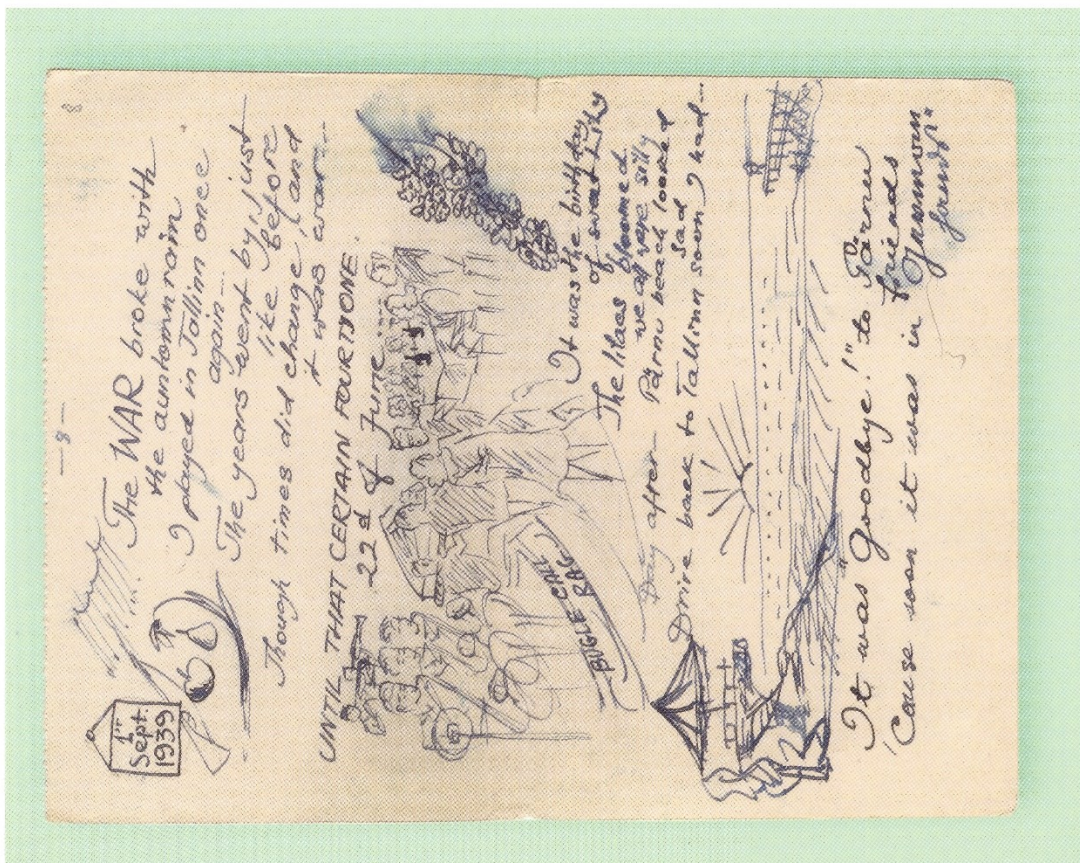 - 8 -
8
1st
Sept.
1939
The WAR broke with
the auntomnraim
I played in Tallinn once
again...
The years went by just
like before
Though times did change, and
it was war...
UNTIL THAT CERTAIN FOURTIONE
22d of June...
BUGLE CALL
RAG
It was the birthday
of sweat Lily
The lilacs bloomed
we all were silly
Day after Pärnu beach looked
sad
Drive back to Tallinn soon I had...
It was "Goodbye!" to Pärnu
friends
'Cause soon it was in